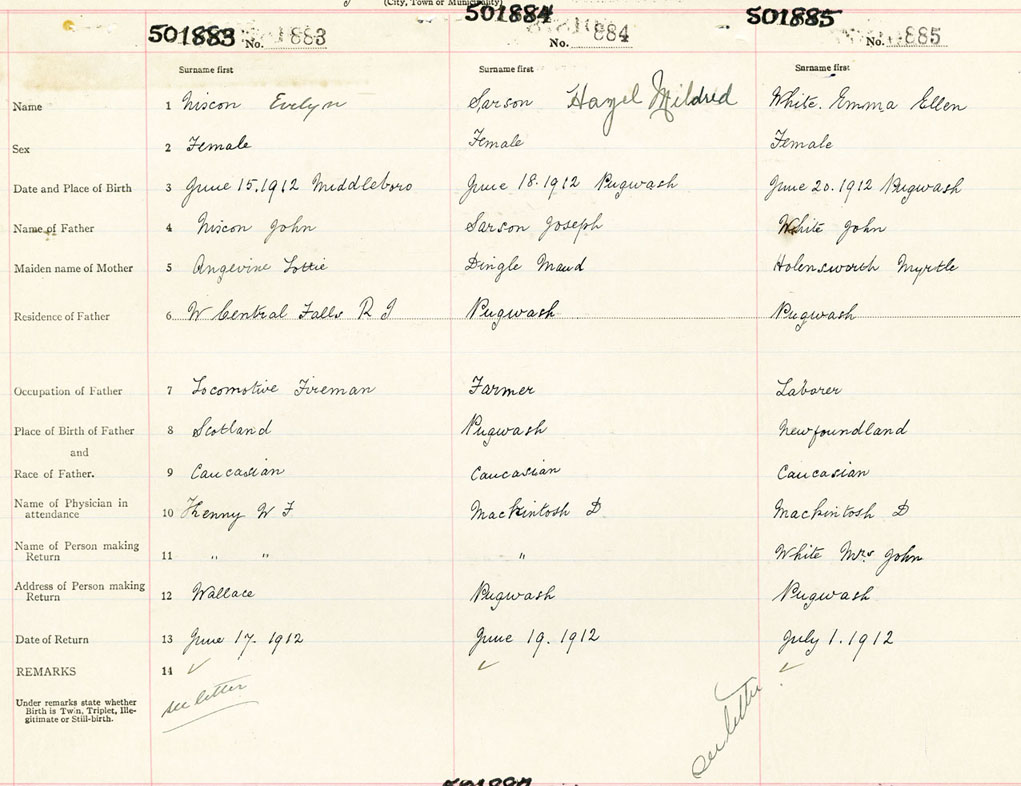 (City, Town or Municipality)
501883 501884 501885
No. 883 No. 884 No. 885
Surname first Surname first Surname first
Name 1 Niscon Evelyn Sarson Hazel Mildred White. Emma Ellen
Sex 2 Female Female Female
Date and Place of Birth 3 June 15.1912 Middleboro June 18.1912 Pugwash June 20.1912 Pugwash
Name of Father 4 Niscon John Sarson Joseph White John
Maiden name of Mother 5 Angevine Lottie Dingle Maud Holensworth Myrtle
Residence of Father 6 W Central Falls R I Pugwash Pugwash
Occupation of Father 7 Locomotive Fireman Farmer Laborer
Place of Birth of Father 8 Scotland Pugwash Newfoundland
and
Race of Father. 9 Caucasian Caucasian Caucasian
Name of Physician in
attendance 10 Kenny W F Mackintosh D Mackintosh D
Name of Person making
Return 11 " " " White Mrs John
Address of Person making
Return 12 Wallace Pugwash Pugwash
Date of Return 13 June 17. 1912 June 19. 1912 July 1. 1912
REMARKS 14 ✓ ✓ ✓
Under remarks state whether
Birth is Twin, Triplet, Ille-
gitimate or Still-birth.
see letter
see letter